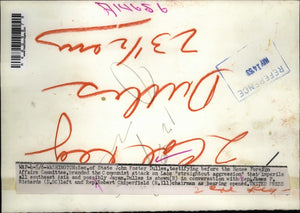 Dulles
23 1/2 ems
2 Col
REFERENCE
MAY 14 53
WAP-5-5/8-WASHINGTON:Sec. of State John Foster Dulles, testifying before the House Foreign
Affairs Committee, branded the Communist attack on Laos "straightout aggression" that imperils
all southeast Asia and possibly Japan. Dulles is shown(R) in conversation with Rep. James P.
Richards (D,SC)left and Rep. Robert Chiperfield (R,Ill)chairman as hearing opened. UNITED PRESS